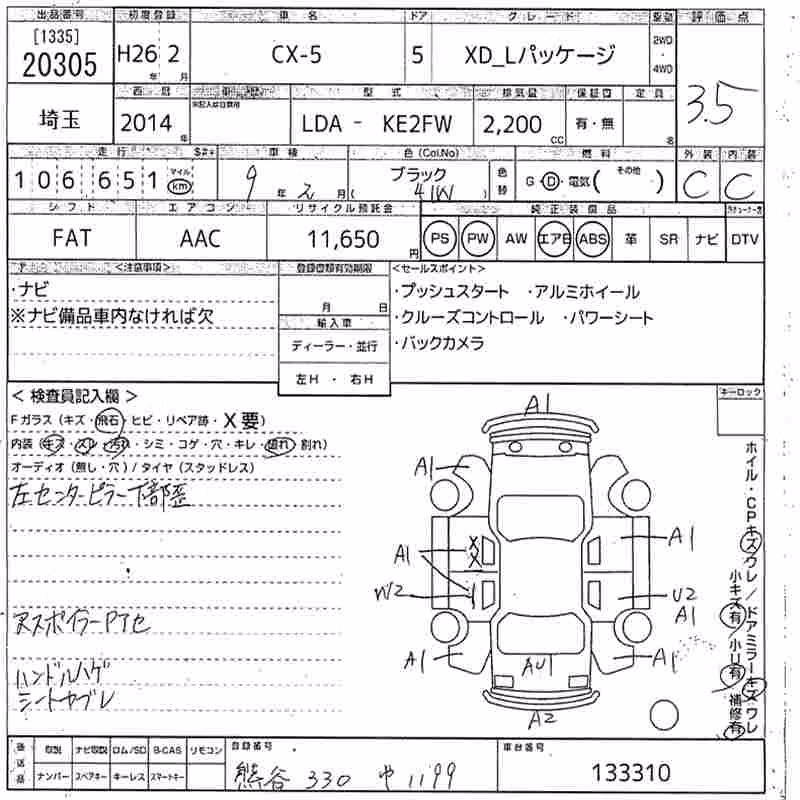 出品番号 初度登録 車名 ドア グレード 駆動 評価点
[1335]
20305 H26年 2月 CX-5 5 XD_Lパッケージ 2WD・4WD 3.5
西暦 型式 排気量 保証書 定員
埼玉 2014年 ※記入は自家用 LDA - KE2FW 2,200CC 有・無 名
走行 車検 色(Col.No) 燃料 外装 内装
106,651 マイル km 9年2月 ブラック (41W) 色替 G・D・電気( その他 ) C C
シフト エアコン リサイクル預託金 純正装備品
FAT AAC 11,650円 PS PW AW エアB ABS 革 SR ナビ DTV
<注意事項> 登録書類有効期限 <セールスポイント>
・ナビ ・プッシュスタート ・アルミホイール
※ナビ備品車内なければ欠 月 日 ・クルーズコントロール ・パワーシート
輸入車 ・バックカメラ
ディーラー・並行
左H ・ 右H
<検査員記入欄> キーロック
Fガラス(キズ・飛石・ヒビ・リペア跡・X要) A1
内装(キズ・スレ・汚れ・シミ・コゲ・穴・キレ・擦れ・割れ) A1
オーディオ(無し・穴)/タイヤ(スタッドレス)
左センターピラー下部歪
A1 X X A1
W2 U2
A1
Rスポイラー PTセ
A1 AU1 A1
ハンドルハゲ
シートヤブレ
A2
ホイル・CPキズワレ/ドアミラーキズワレ
小キズ有/小U有/補修有
後送品 取説 ナビ取説 ロム/SD B-CAS リモコン 登録番号 車台番号
ナンバー スペアキー キーレス スマートキー 熊谷 330 や 1199 133310